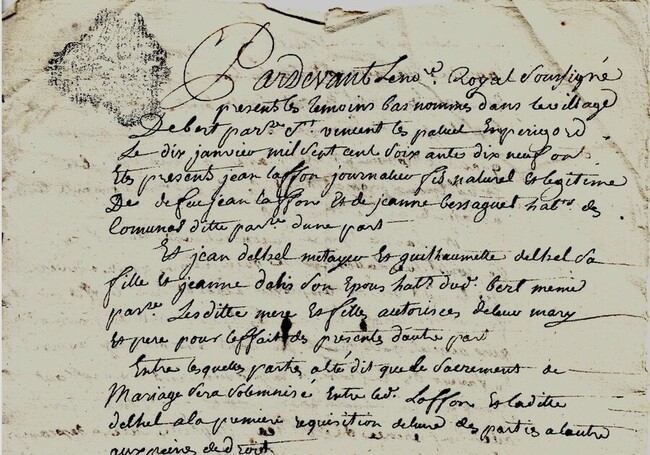 Pardevant Lenore. Royal Soussigné
presents les temoins bas nommés dans le village
De bert parse. St. vincent les paluel En perigord
Le dix janvier mil sept cent soixante dix neuf on
Etes present jean laffon journalier fils naturel et legitime
De defeu jean laffon et de jeanne bessaguet habts des
Comunas ditte parse. d'une part
Et jean delhel metayer et guilhaumette delhel sa
fille et jeanne dalis son Epouse habts. dud. bert meme
parse. Lesditte mere et filles autorisees de leur mary
et pere pour l'effait des presentes d'autre part
Entre lesquelles parties a eté dit que le sacrement de
Mariage sera solemnisé Entre led. Laffon et laditte
delhel a la premiere requisition de lune des parties a lautre
aux peines de droit